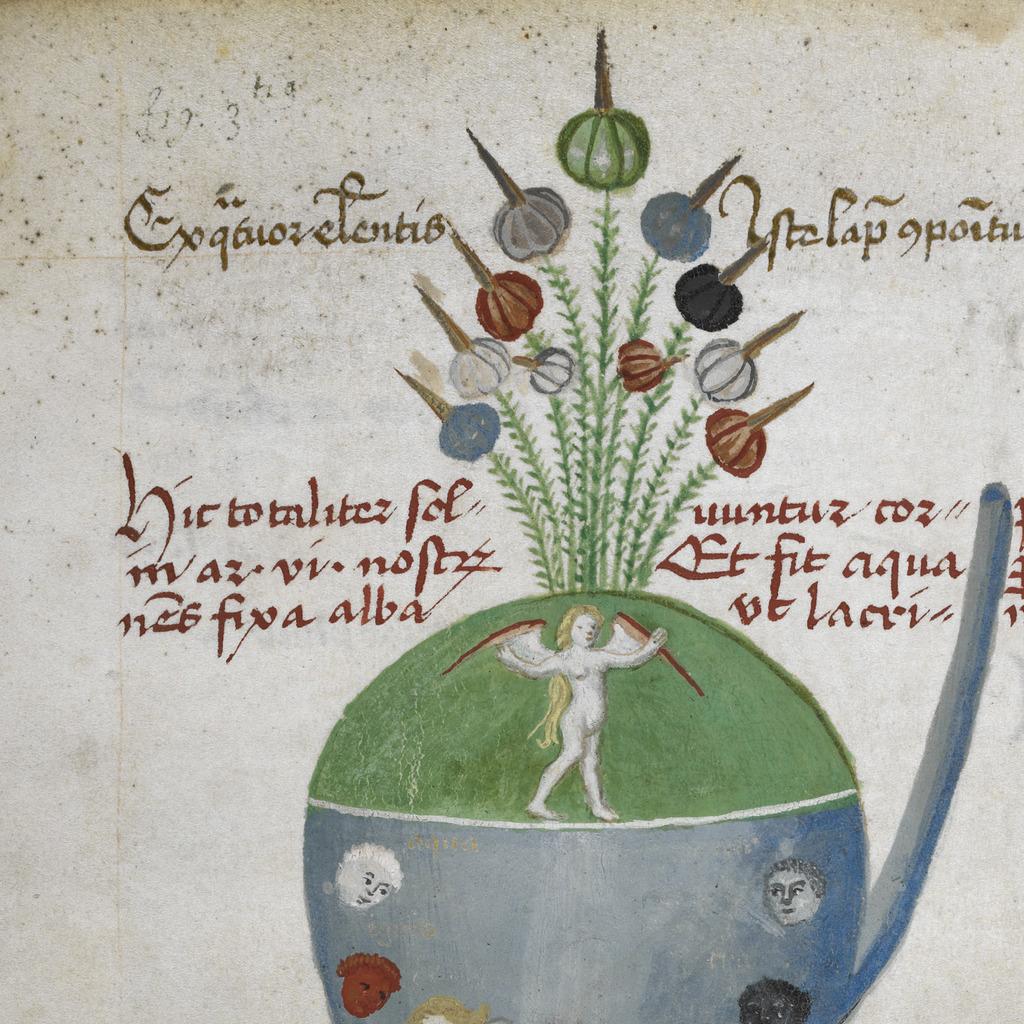 fig. 3 tia
Ex qͣtuor elentis Iste lap̄ ꝯpoītu
Hic totaliter sol- uuntur cor-
in ar. vi. nostrꝝ Et fit aqua
nēs fixa alba vt lacri-